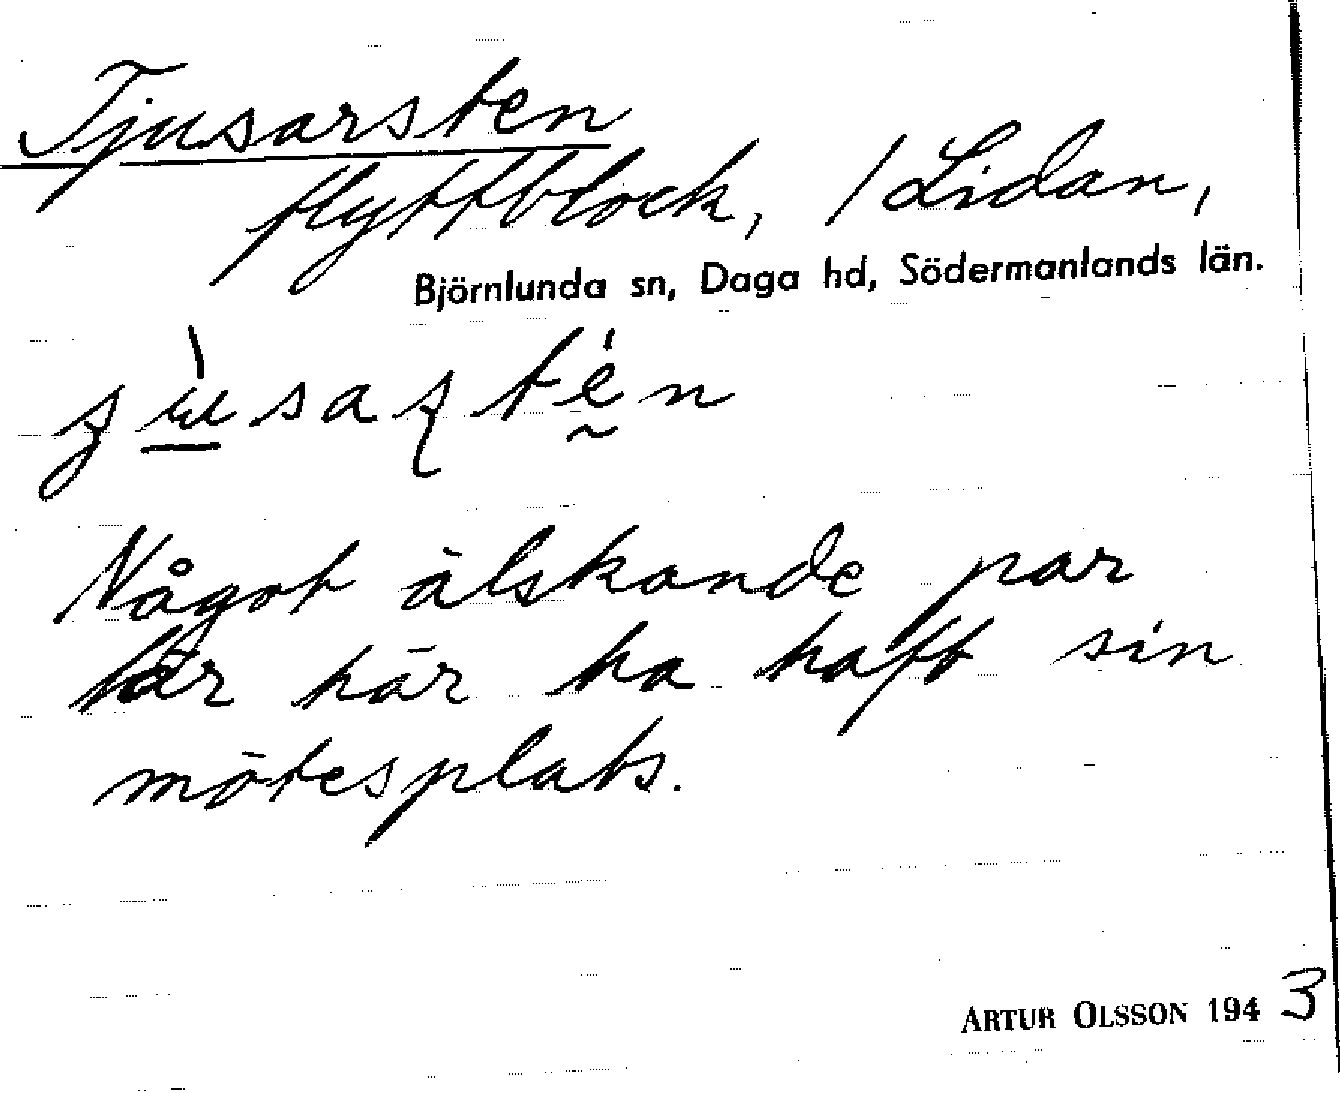 Tjusarsten
flyttblock, / Lidan,
Björnlunda sn, Daga hd, Södermanlands län.
Något älskande par
lär här ha haft sin
mötesplats.
ARTUR OLSSON 1943